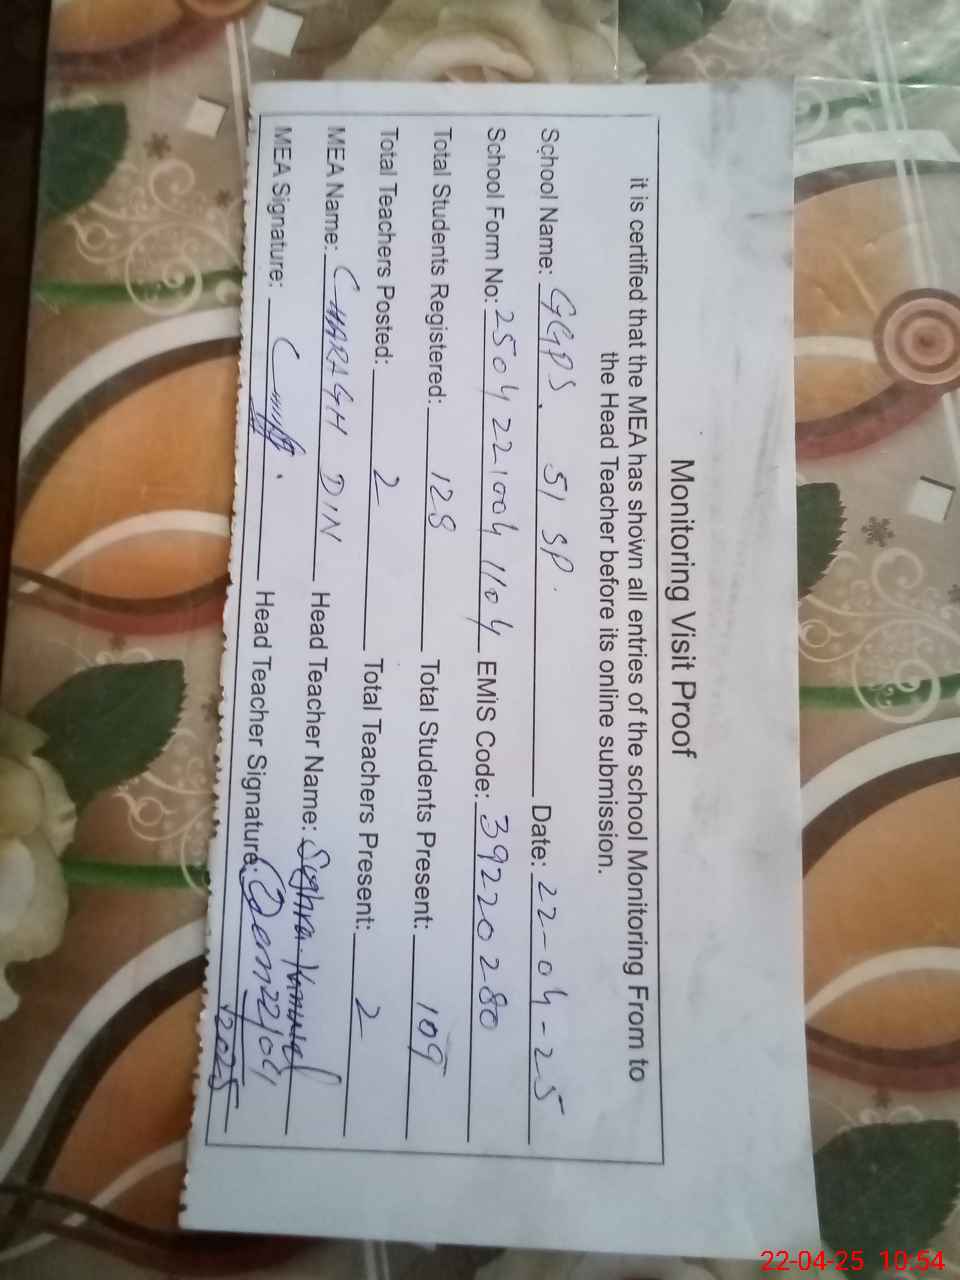 Monitoring Visit Proof
it is certified that the MEA has shown all entries of the school Monitoring From to
the Head Teacher before its online submission.
School Name: GGPS. 51 SP. Date: 22-04-25
School Form No: 25042210041104 EMIS Code: 39220280
Total Students Registered: 128 Total Students Present: 109
Total Teachers Posted: 2 Total Teachers Present: 2
MEA Name: CHARAGH DIN Head Teacher Name: Sughra
MEA Signature: Head Teacher Signature: 22/04/
2025
22-04-25 10:54